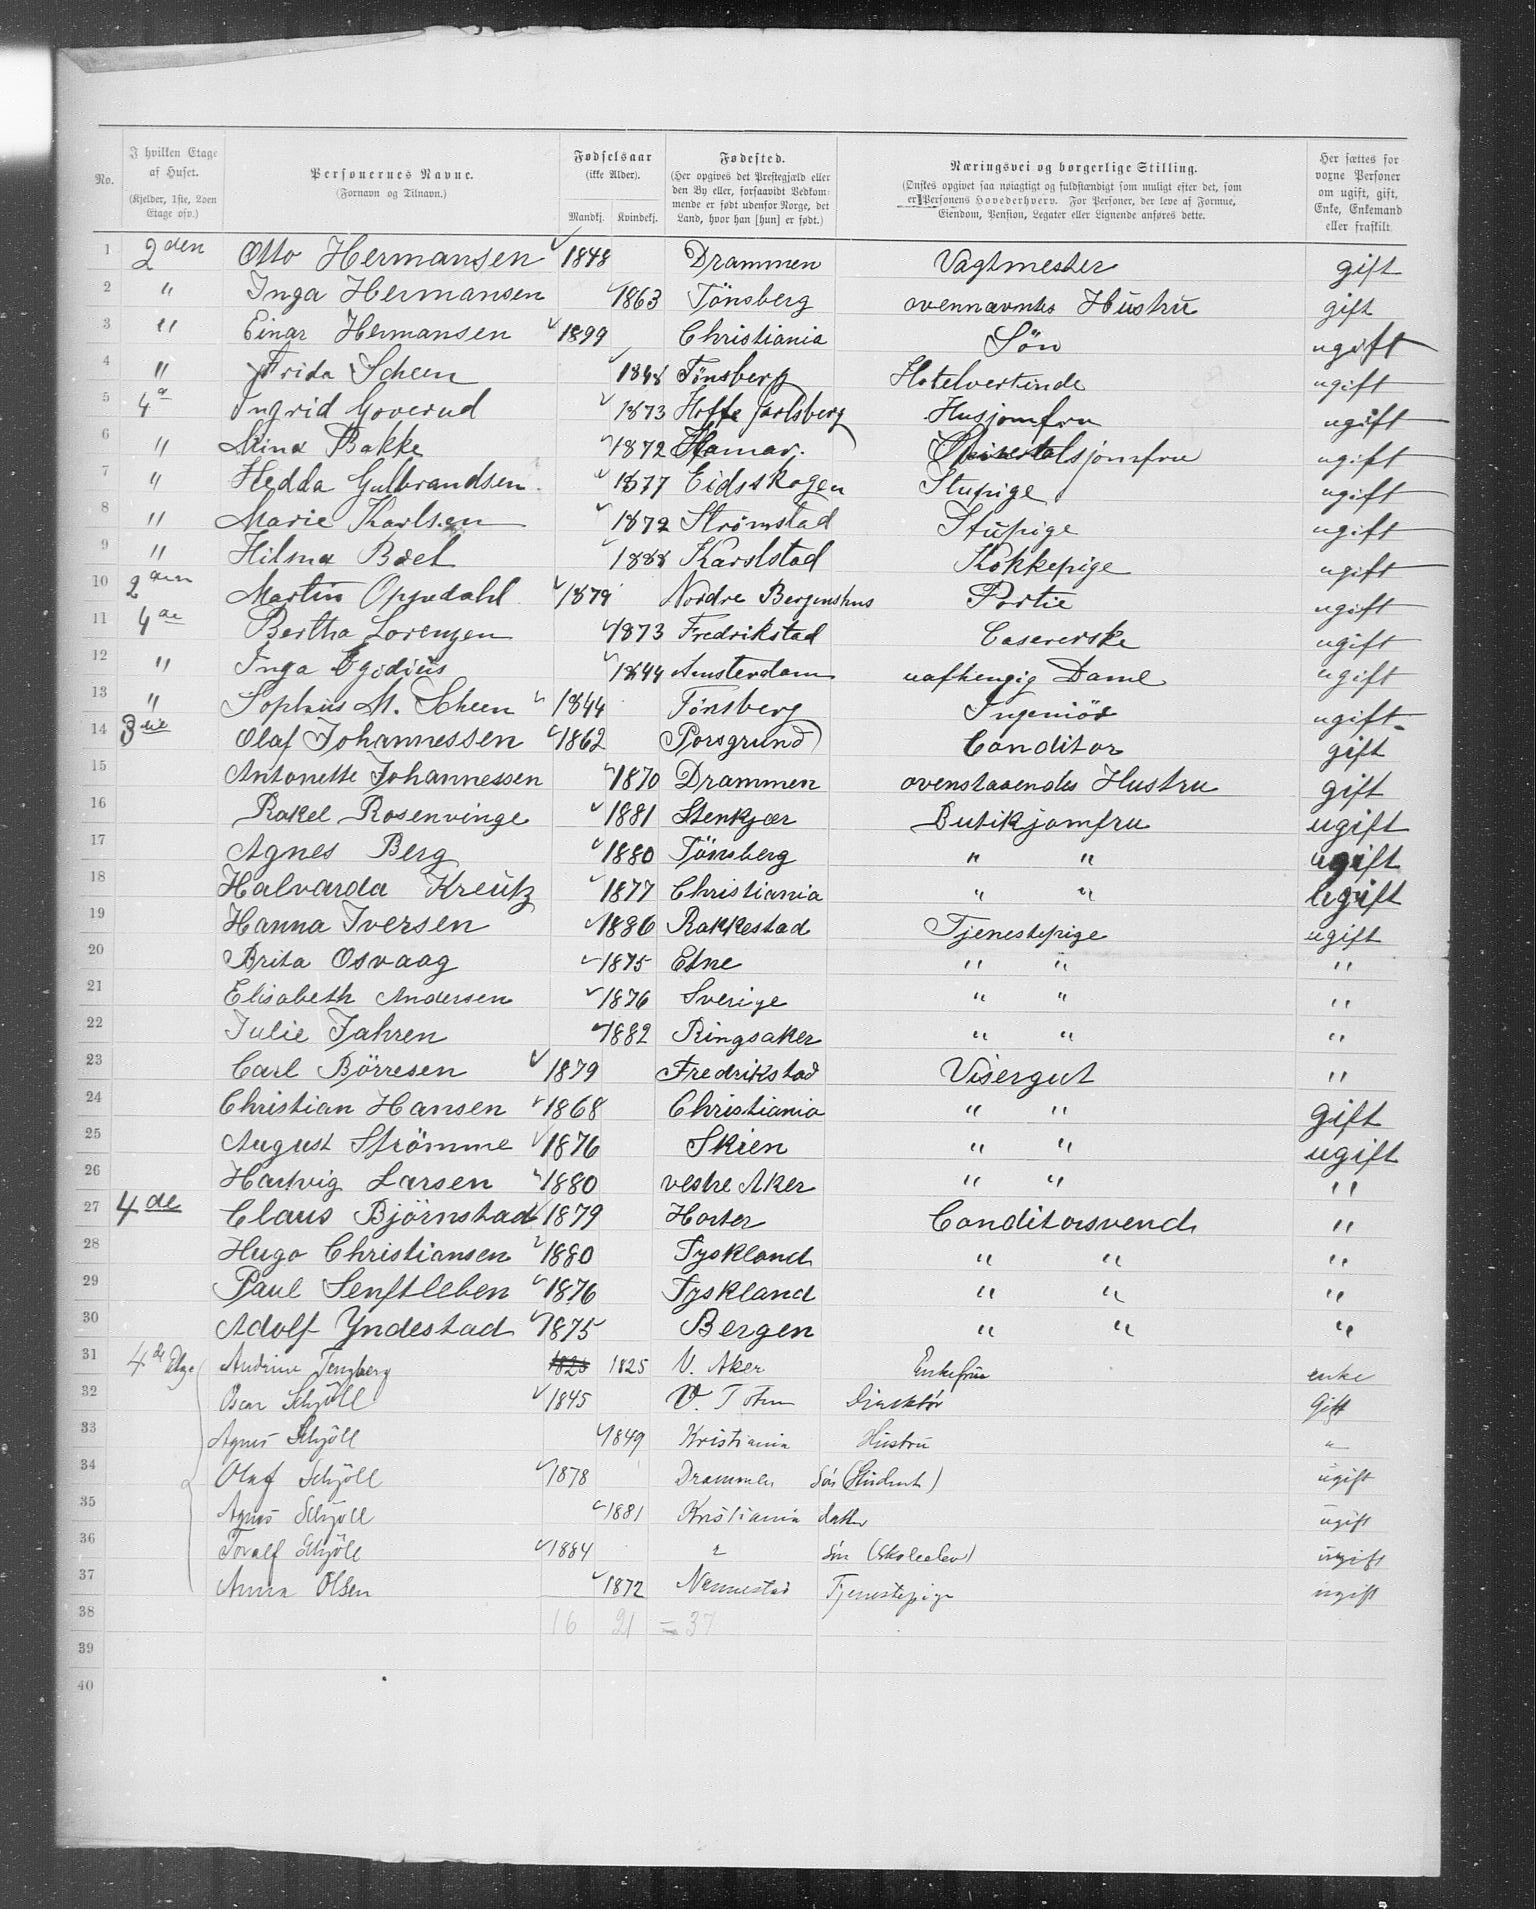 No.
I hvilken Etage af Huset.
(Kjelder, 1ste, 2den Etage osv.)
Personernes Navne.
(Fornavn og Tilnavn.)
Fødselsaar
(ikke Alder).
Mandkj. Kvindekj.
Fødested.
(Her opgives det Prestegjæld eller
den By eller, forsaavidt Vedkom-
mende er født udenfor Norge, det
Land, hvor han [hun] er født.)
Næringsvei og borgerlige Stilling.
(Ønskes opgivet saa nøiagtigt og fuldstændigt som muligt efter det, som
er Personens Hovederhverv. For Personer, der leve af Formue,
Eiendom, Pension, Legater eller Lignende anføres dette.
Her sættes for
voxne Personer
om ugift, gift,
Enke, Enkemand
eller fraskilt.
1 2den Otto Hermansen 1848 Drammen Vagtmester gift
2 " Inga Hermansen 1863 Tönsberg ovennævntes Hustru gift
3 " Einar Hermansen 1899 Christiania Sön ugift
4 " Frida Scheen 1848 Tönsberg Hotelvertinde ugift
5 4a Ingrid Goverud 1873 Hoffe Jarlsberg Husjomfru ugift
6 " Mina Bakke 1872 Hamar. ugift
7 " Hedda Gulbrandsen 1877 Eidsskogen Stupige ugift
8 " Marie Karlsen 1872 Strømstad Stupige ugift
9 " Hilma Boel 1888 Karlstad Kokkepige ugift
10 2den Martin Oppedahl 1879 Nordre Bergenshus Portie ugift
11 4de Bertha Lorenzen 1873 Fredrikstad Casererske ugift
12 " Inga Egidius 1844 Amsterdam uafhengig Dame ugift
13 " Sophus M. Scheen 1844 Tönsberg Ingeniör ugift
14 3die Olaf Johannessen 1862 Porsgrund Conditor gift
15 Antonette Johannessen 1870 Drammen ovenstaaendes Hustru gift
16 Rakel Rosenvinge 1881 Stenkjær Butikjomfru ugift
17 Agnes Berg 1880 Tönsberg " " ugift
18 Halvarda Kreutz 1877 Christiania " " ugift
19 Hanna Iversen 1886 Rakkestad Tjenestepige ugift
20 Brita Osvaag 1875 Etne " " "
21 Elisabeth Andersen 1876 Sverige " " "
22 Julie Jahren 1882 Ringsaker " " "
23 Carl Börresen 1879 Fredrikstad Visergut "
24 Christian Hansen 1868 Christiania " " gift
25 August Strömme 1876 Skien " " ugift
26 Hartvig Larsen 1880 vestre Aker " " "
27 4de Claus Björnstad 1879 Horter Conditorsvend "
28 Hugo Christiansen 1880 Tyskland " " "
29 Paul Senftleben 1876 Tyskland " " "
30 Adolf Yndestad 1875 Bergen " " "
31 4de Etge Andrine Tengberg 1825 1825 V. Aker Enkefrue enke
32 Oscar Schjöll 1845 V. Toten Direktör Gift
33 Agnes Schjöll 1849 Kristiania Hustru "
34 Olaf Schjöll 1878 Drammen Sön (Student) ugift
35 Agnes Schjöll 1881 Kristiania datter ugift
36 Toralf Schjöll 1884 " Sön (Skoleelev) ugift
37 Anna Olsen 1872 Nannestad Tjenestepige ugift
38 16 21 = 37
39
40